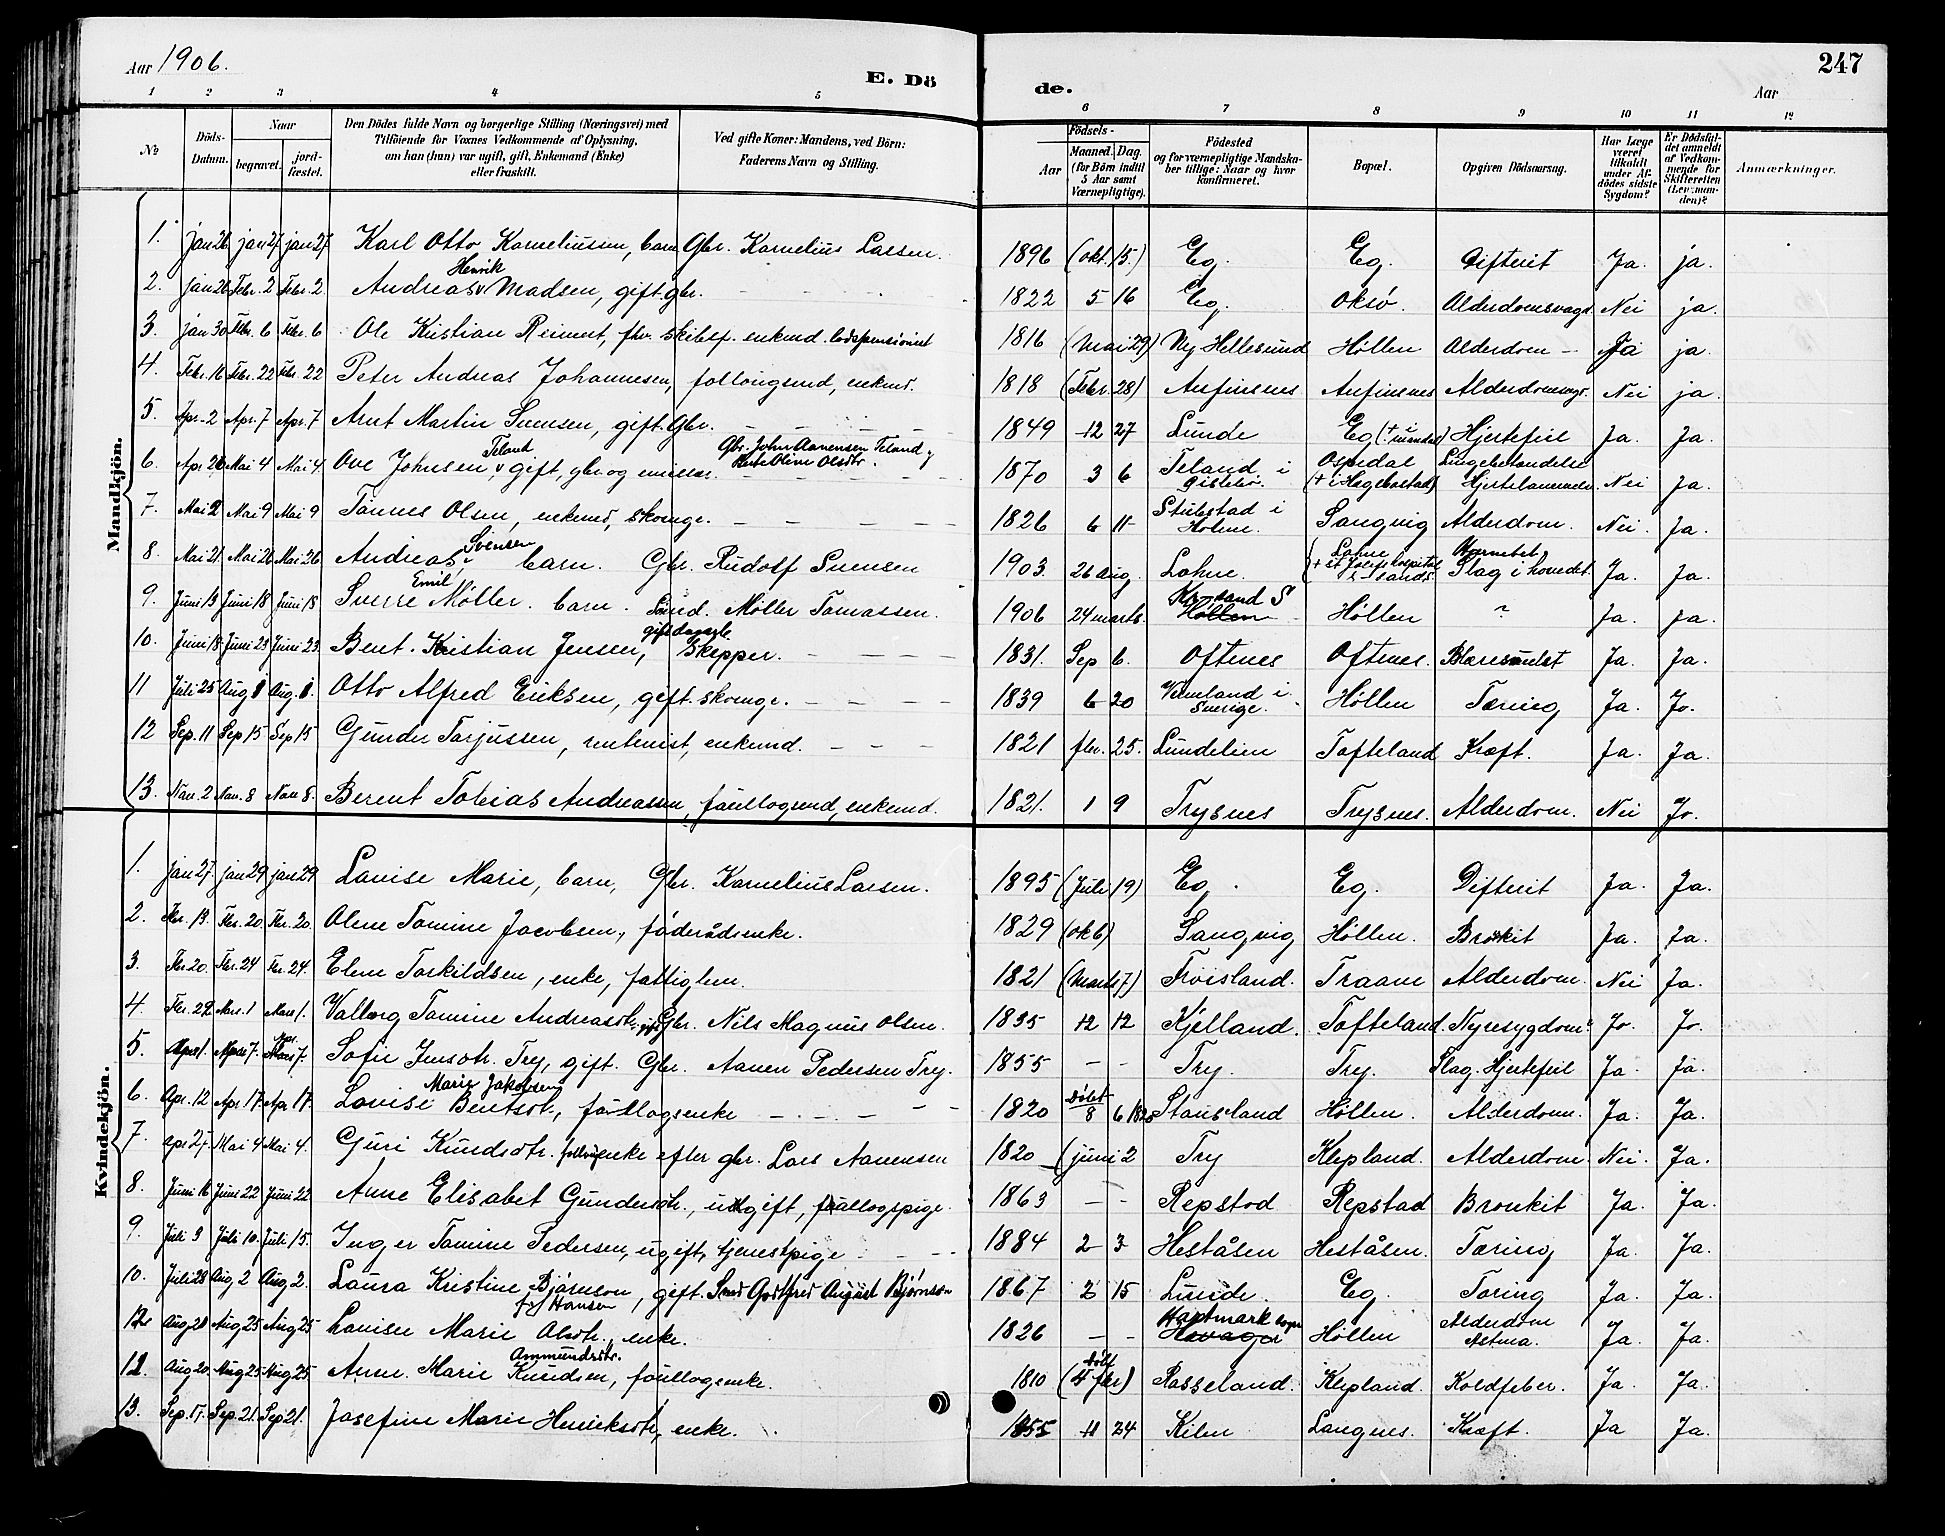 Aar 1906.
E. Dö
de.
Aar
247
1 2 3 4 5 6 7 8 9 10 11 12
No
Döds-Datum.
Naar
begravet.
jord-fæstet.
Den Dödes fulde Navn og borgerlige Stilling (Næringsvei) med Tilföiende for Voxnes Vedkommende af Oplysning, om han (hun) var ugift, gift, Enkemand (Enke) eller fraskilt.
Ved gifte Koner: Mandens, ved Börn: Faderens Navn og Stilling.
Födsels-
Aar
Maaned. Dag.
(for Børn indtil 5 Aar samt Værnepligtige).
Födested og for værnepligtige Mandskaber tillige: Naar og hvor konfirmeret.
Bopæl.
Opgiven Dödsaarsag.
Har Læge været tilkaldt under Afdödes sidste Sygdom?
Er Dödsfaldet anmeldt af Vedkommende for Skifteretten (Lensmanden)?
Anmærkninger.
Mandkjön.
1. jan 26 jan 27 jan 27 Karl Otto Korneliusen, barn Gbr. Kornelius Larsen. 1896 (okt. 15.) Eg. Eg. Difterit Ja. ja.
2. jan 26 Febr. 2 Febr. 2. Andreas Henrik Madsen, gift. gbr. 1822 5 16 Eg. Oksø. Alderdomsvags Nei ja.
3. jan 30 Febr. 6 Febr. 6 Ole Kristian Reinert, fhv. skibsf. enkmd. lodspensionist 1816 (Mai 29) Ny Hellesund Høllen Alderdom - Ja ja.
4. Febr. 16 Febr. 22 Febr. 22 Peter Andreas Johannesen, follougsmd, enkmd. 1818 (Febr. 28) Aufinsnes Aufinsnes Alderdomsvags. Nei ja.
5. Apr. 2 Apr. 7 Apr. 7 Arnt Martin Svensen, gift. Gbr. 1849 12 27 Lunde Eg (+ i Mandal) Hjertefeil Ja. Ja.
6. Apr. 26 Mai 4 Mai 4. Ove Johnsen Teland, gift, gbr og emissær. Gbr. John Aanensen Teland og Berte Oline Olsdtr. 1870 3 6 Teland i Ospedal (+ i Hægebostad) Hjertelammelse. Nei Ja.
7. Mai 2 Mai 9 Mai 9 Tønnes Olsen, enkemd, skomgr. 1826 6 11 Stubstad i Holme. Sangvig Alderdom. Nei. Ja.
8. Mai 21. Mai 26 Mai 26 Andreas Svensen barn. Gbr. Rudolf Svensen 1903. 26 Aug. Lohne. Lohne Slag i hovedet. Ja. Ja.
9. Juni 13 Juni 18 Juni 18 Sverre Emil Møller. barn. Smed. Møller Tomassen. 1906 24 marts. Kr-sand S Høllen Høllen ? Ja. Ja.
10. Juni 18 Juni 23 Juni 23. Bent Kristian Jensen, gift dagarb. skipper. 1831. Sep 6. Oftenes Oftenes. Blæresvulst Ja. Ja.
11 Juli 25 Aug 1 Aug. 1. Otto Alfred Eriksen, gift. skomgr. 1839 6 20 Vermland i Sverige. Høllen Tæring Ja. Jo.
12 Sep. 11 Sep 15 Sep 15 Gunder Torjussen, rentenist, enkemd. 1821 fbr. 25. Lundelien Tofteland Kræft. Ja. Ja.
13. Nov. 2 Nov. 8 Nov 8. Berent Tobias Andreassen, føullogsmd, enkemd. 1821. 1 9 Trysnes Trysnes. Alderdom. Nei Jo.
Kvindekjön.
1. jan 27. jan 29 jan 29 Lovise Marie, barn, Gbr. Kornelius Larsen. 1895 (Juli 19) Eg. Eg. Difterit Ja. Ja.
2. Fbr. 13. Fbr. 20 Fbr. 20. Olene Tomine Jacobsen, føderådsenke. 1829 (okt) Sangvig Høllen. Bronkit Ja. Ja.
3. Fbr 20. Fbr. 24 Fbr. 24. Elene Torkildsen, enke, fattiglem. 1821 (Marts 7) Frøisland. Traane Alderdom. Nei Ja.
4. Fbr. 22 Mars. 1 Mars 1. Valborg Tomine Andreasdtr. gift Gbr. Nils Magnus Olsen. 1835 12 12 Kjelland. Tofteland. Nyresygdom. Jo. Jo.
5. April 1. April 7. Apr. 7. Sofie Jensdtr. Try, gift. Gbr. Aanen Pedersen Try. 1855 - - Try. Try. Slag. Hjertefeil Ja. Ja.
6. Apr. 12 Apr 17. Apr 17. Lovise Marie Jakobsen Bentsdtr., føullogsenke 1820 Døbt 8 6 1820 Stausland Høllen. Alderdom. Ja. Ja.
7. apr 27. Mai 4 Mai 4. Guri Knudsdtr. follougenke efter gbr. Lars Aanensen 1820 (juni 2 Try Klepland. Alderdom. Nei. Ja.
8. Juni 16 Juni 22 Juni 22 Anne Elisabet Gundersdtr., ugift, føullogspige. 1863 - - Repstad Repstad Bronkit Ja. Ja.
9. Juli 9 Juli 10. Juli 15. Inger Tomine Pedersen, ugift, tjenestpige 1884 2 3 Heståsen Heståsen. Tæring Ja. Ja.
10. Juli 28 Aug 2 Aug 2. Laura Kristine Bjørnson f. Hansen, gift. Smed Godtfred August Bjørnson 1867 2 15 Lunde. Eg. Tæring Ja. Ja.
Aug 20 Aug 25 Aug 25 Lovise Marie Olsdtr., enke. 1826 - - Havtmark sogn Høllen Alderdom Astma. Ja. Ja.
12. Aug 20. Aug 25 Aug 25 Anne Marie Ammundsdtr. Knudsen, føullogsenke. 1810 (døbt 4 fbr) Rosseland. Klepland. Koldfeber. Ja. Ja.
13. Sep. 17. Sep. 21. Sep 21. Josefine Marie Henriksdtr, enke. 1855 11 24 Kilen Langenes. Kræft. Ja Ja.